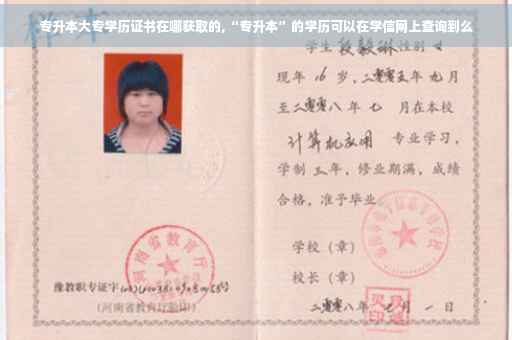 专升本大专学历证书在哪获取的,“专升本”的学历可以在学信网上查询到么
样本
学生 段毅琳 性别 女
现年 16 岁，二零零五年 九月
至二零零八年 七 月在本校
计算机应用 专业学习，
学制 三 年，修业期满，成绩
合格，准予毕业。
学校（章）
校长（章）
河南省教育厅
豫教职专证字
（河南省教育厅验印）
二零零八年 七 月 一 日